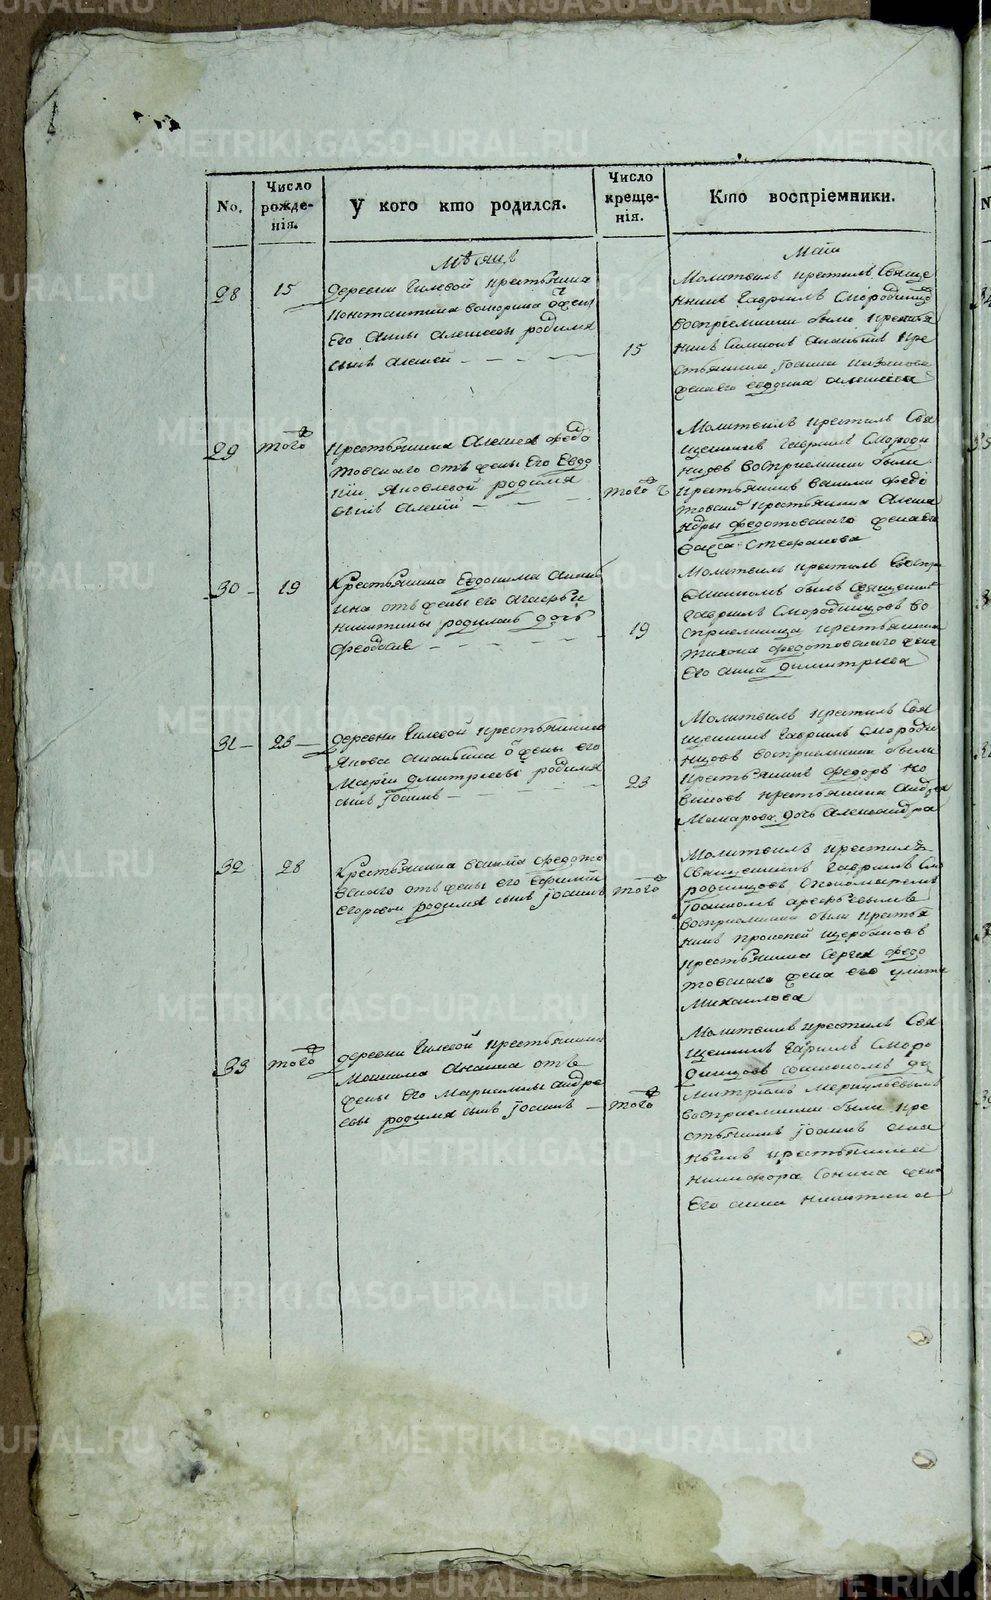 METRIKI.GASO-URAL.RU
No.
Число рожде-нія.
У кого кто родился.
Число креще-нія.
Кто воспріемники.
Мѣсяцъ
Маій
28
15
деревни Гилевой крестьянина
его Анны Алексеевы родился
сынъ Алексей
15
Молитвилъ крестилъ Свяще
нникъ Гаврилъ Смородинцо
воспрiемники были крестья
нинъ Симионъ Ананьинъ кре
стьянина Iоанна
жена его Евдокиа Алексеева
29
того
крестьянина Алексея Федо
товскаго отъ жены его Евдо
кiи Яковлевой родился
сынъ Алексiй
того
Молитвилъ крестилъ Свя
щенникъ Гаврилъ Смороди
нцовъ восприемники были
крестьянинъ Василiй Федо
товский крестьянина Алекса
ндры Федотовскаго жена его
Стефанова
30
19
Крестьянина Евдокима Анань
ина отъ жены его Агафьи
Никитины родилась дочь
Феодосiя
19
Молитвилъ крестилъ
былъ Священникъ
Гаврилъ Смородинцовъ во
сприемница крестьянина
Тихона Федотовскаго жена
Его Анна Димитриева
31
23
деревни Гилевой крестьянина
Якова Ананьина о жены его
Марiи Дмитриевы родился
сынъ Iоаннъ
23
Молитвилъ крестилъ Свя
щенникъ Гаврилъ Смороди
нцовъ восприемники были
крестьянинъ Федоръ Но
виковъ крестьянина Андрея
Макарова дочь Александра
32
28
Крестьянина Василiя Федото
вскаго отъ жены его Евфимiи
Егоровой родился сынъ Iоаннъ
того
Молитвилъ крестилъ
Священникъ Гаврилъ Смо
родинцовъ Спономаремъ
Iоанномъ Арефьевымъ
восприемники были крестья
нинъ Прокопей Щербаковъ
крестьянина Сергея Федо
товскаго жена его Улита
Михаилова
33
того
деревни Гилевой крестьянина
Максима Ананина отъ
жены его Маркелины Андре
евы родился сынъ Iоаннъ
того
Молитвилъ крестилъ Свя
щенникъ Гаврилъ Сморо
динцовъ Сдиакономъ Ди
митриемъ Меркульевымъ
восприемники были кре
стьянинъ Iоаннъ Ана
ньинъ крестьянина
Никифора Сонина жена
Его Анна Никитина